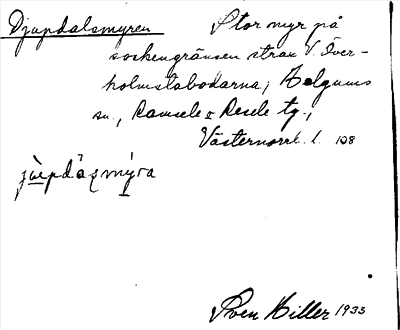 Djupdalsmyren Stor myr på
sockengränsen strax V Över-
holmstabodarna; Helgums
sn., Ramsele & Resele tg.,
Västernorrl. l. 108
jùpdȧʒmýra
Sven Hiller 1933